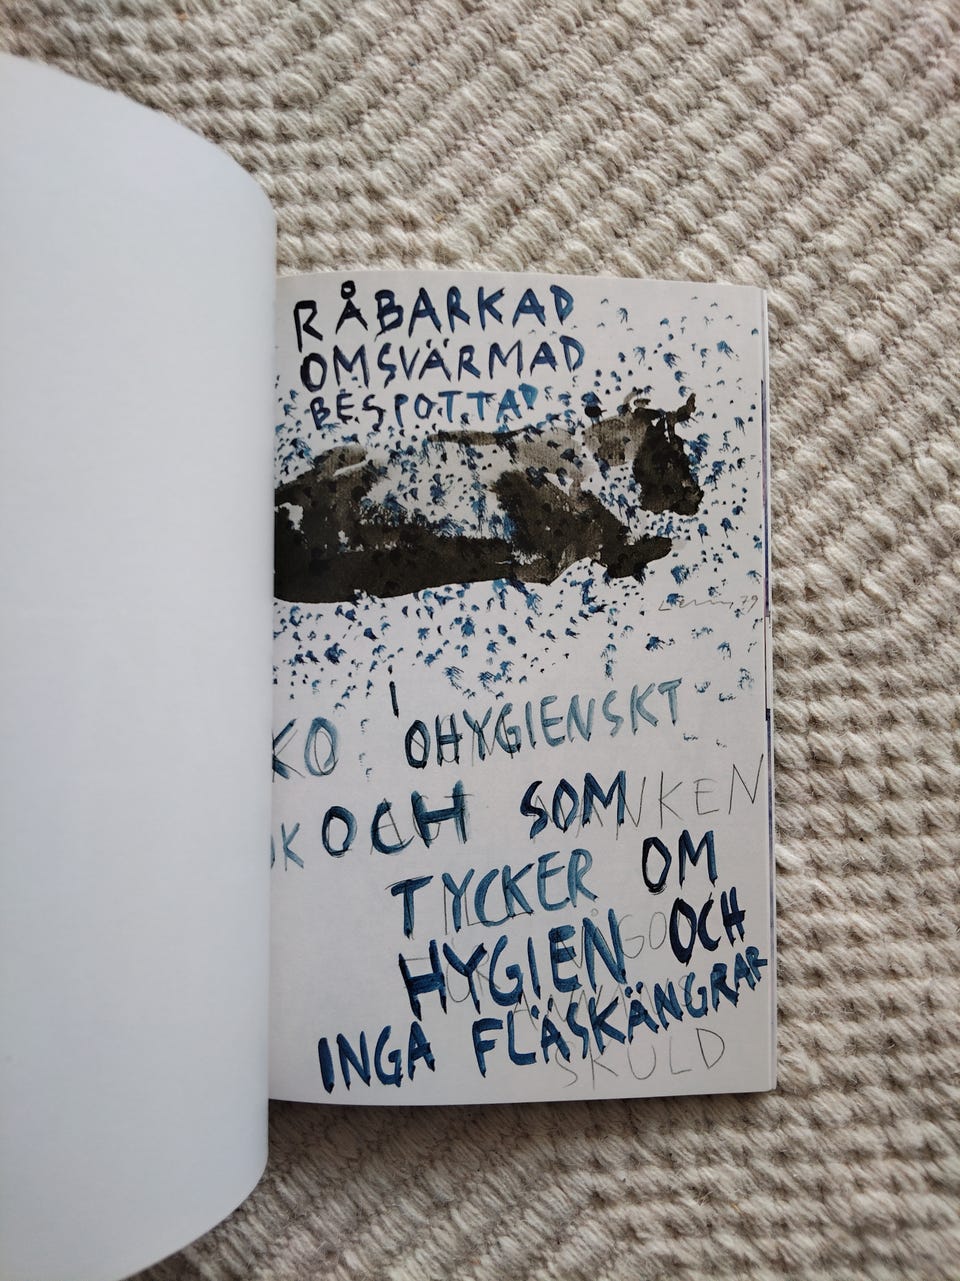 RÅBARKAD
OMSVÄRMAD
BESPOTTAD
79
KO I OHYGIENSKT
OCH SOM
TYCKER OM
HYGIEN OCH
INGA FLÄSKÄNGRAR
SKULD